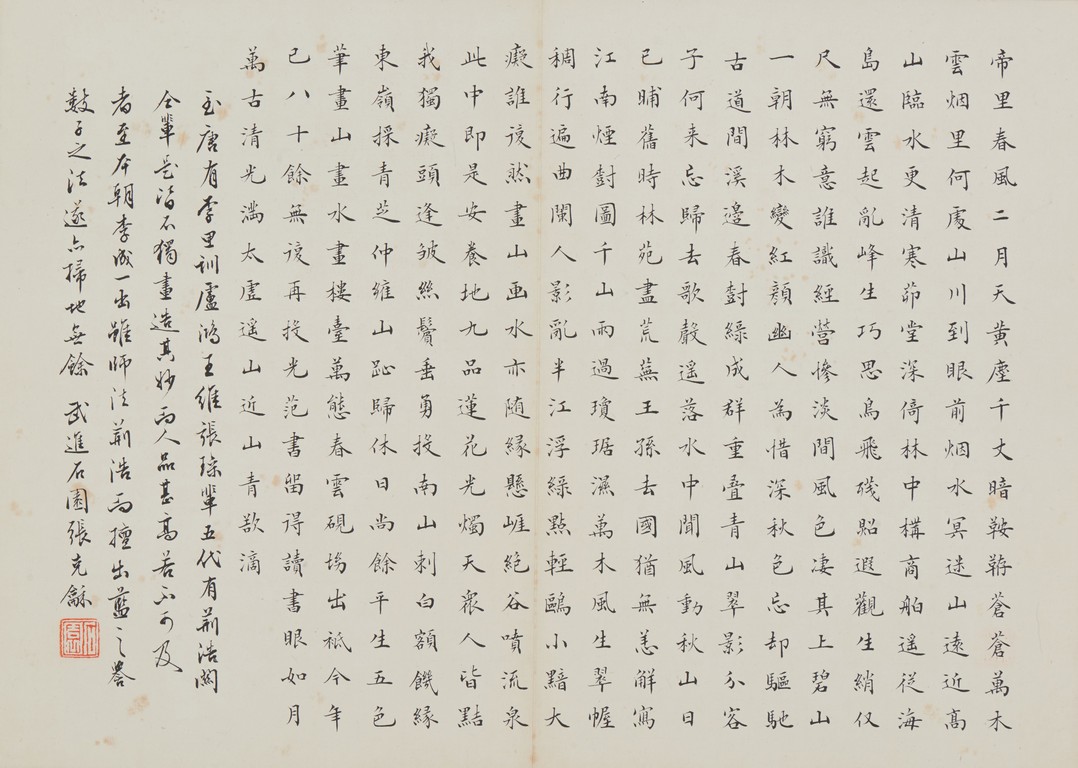 帝里春風二月天黄塵千丈暗鞍韉蒼蒼萬木
雲烟里何處山川到眼前烟水冥迷山遠近高
山臨水更清寒茆堂深倚林中構商舶遥從海
島還雲起亂峰生巧思鳥飛殘照遐觀生綃仅
尺無窮意誰識經營慘淡間風色凄其上碧山
一朝林木變紅顔幽人為惜深秋色忘却驅馳
古道間溪邊春樹緑成群重疊青山翠影分客
子何来忘歸去歌聲遥落水中聞風動秋山日
已晡舊時林苑盡荒蕪王孫去國猶無恙解寫
江南煙樹圖千山雨過瓊琚濕萬木風生翠幄
稠行遍曲闌人影亂半江浮緑點輕鷗小黠大
癡誰該然畫山画水亦随緣懸崖絕谷噴流泉
此中即是安養地九品蓮花光燭天衆人皆黠
我獨癡頭逢皱絲鬢垂勇投南山刺白額饑緣
東嶺採青芝仲雍山趾歸休日尚餘平生五色
筆畫山畫水畫樓臺萬態春雲硯塲出祇今年
已八十餘無該再投光范書留得讀書眼如月
萬古清光滿太虚遥山近山青欲滴
至唐有李思訓盧鴻王維張璪輩五代有荊浩關
仝輩是皆不獨畫造其妙而人品甚高若不可及
者至本朝李成一出雖師法荊浩而擅出藍之譽
數子之法遂亦掃地無餘 武進石園張克龢
石園